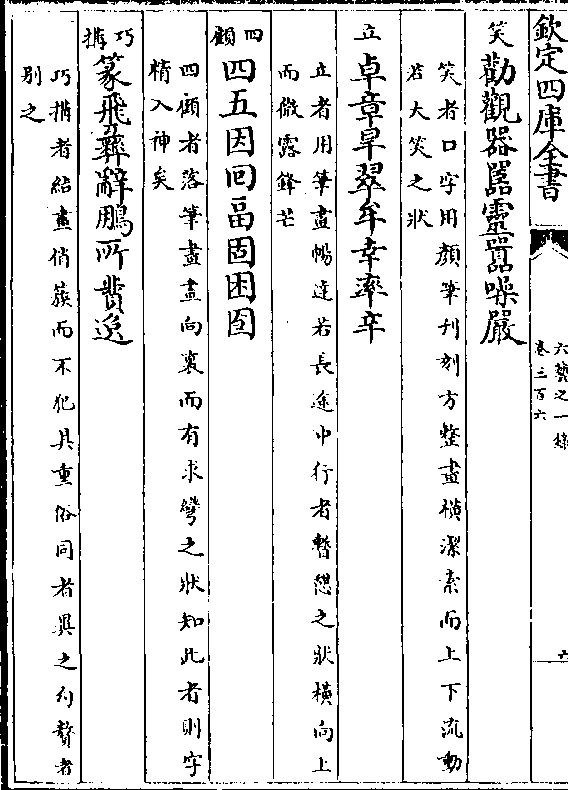 欽定四庫全書
六藝之一錄
卷三百六
六
笑 勸觀器嚚靈囂噪嚴
笑者口字用顏筆刋刻方整畫橫潔素而上下流動
若大笑之狀
立 卓章早翠牟幸率辛
立者用筆畫暢達若長途中行者暫憇之狀橫向上
而微露鋒芒
四顧 四五因回畐固困囼
四顧者落筆畫盡向裏而有求彎之狀知此者則字
精入神矣
巧構 篆飛彝辭鵬所費邍
巧構者結畫俏蔟而不犯具重俗同者異之幻贅者
别之